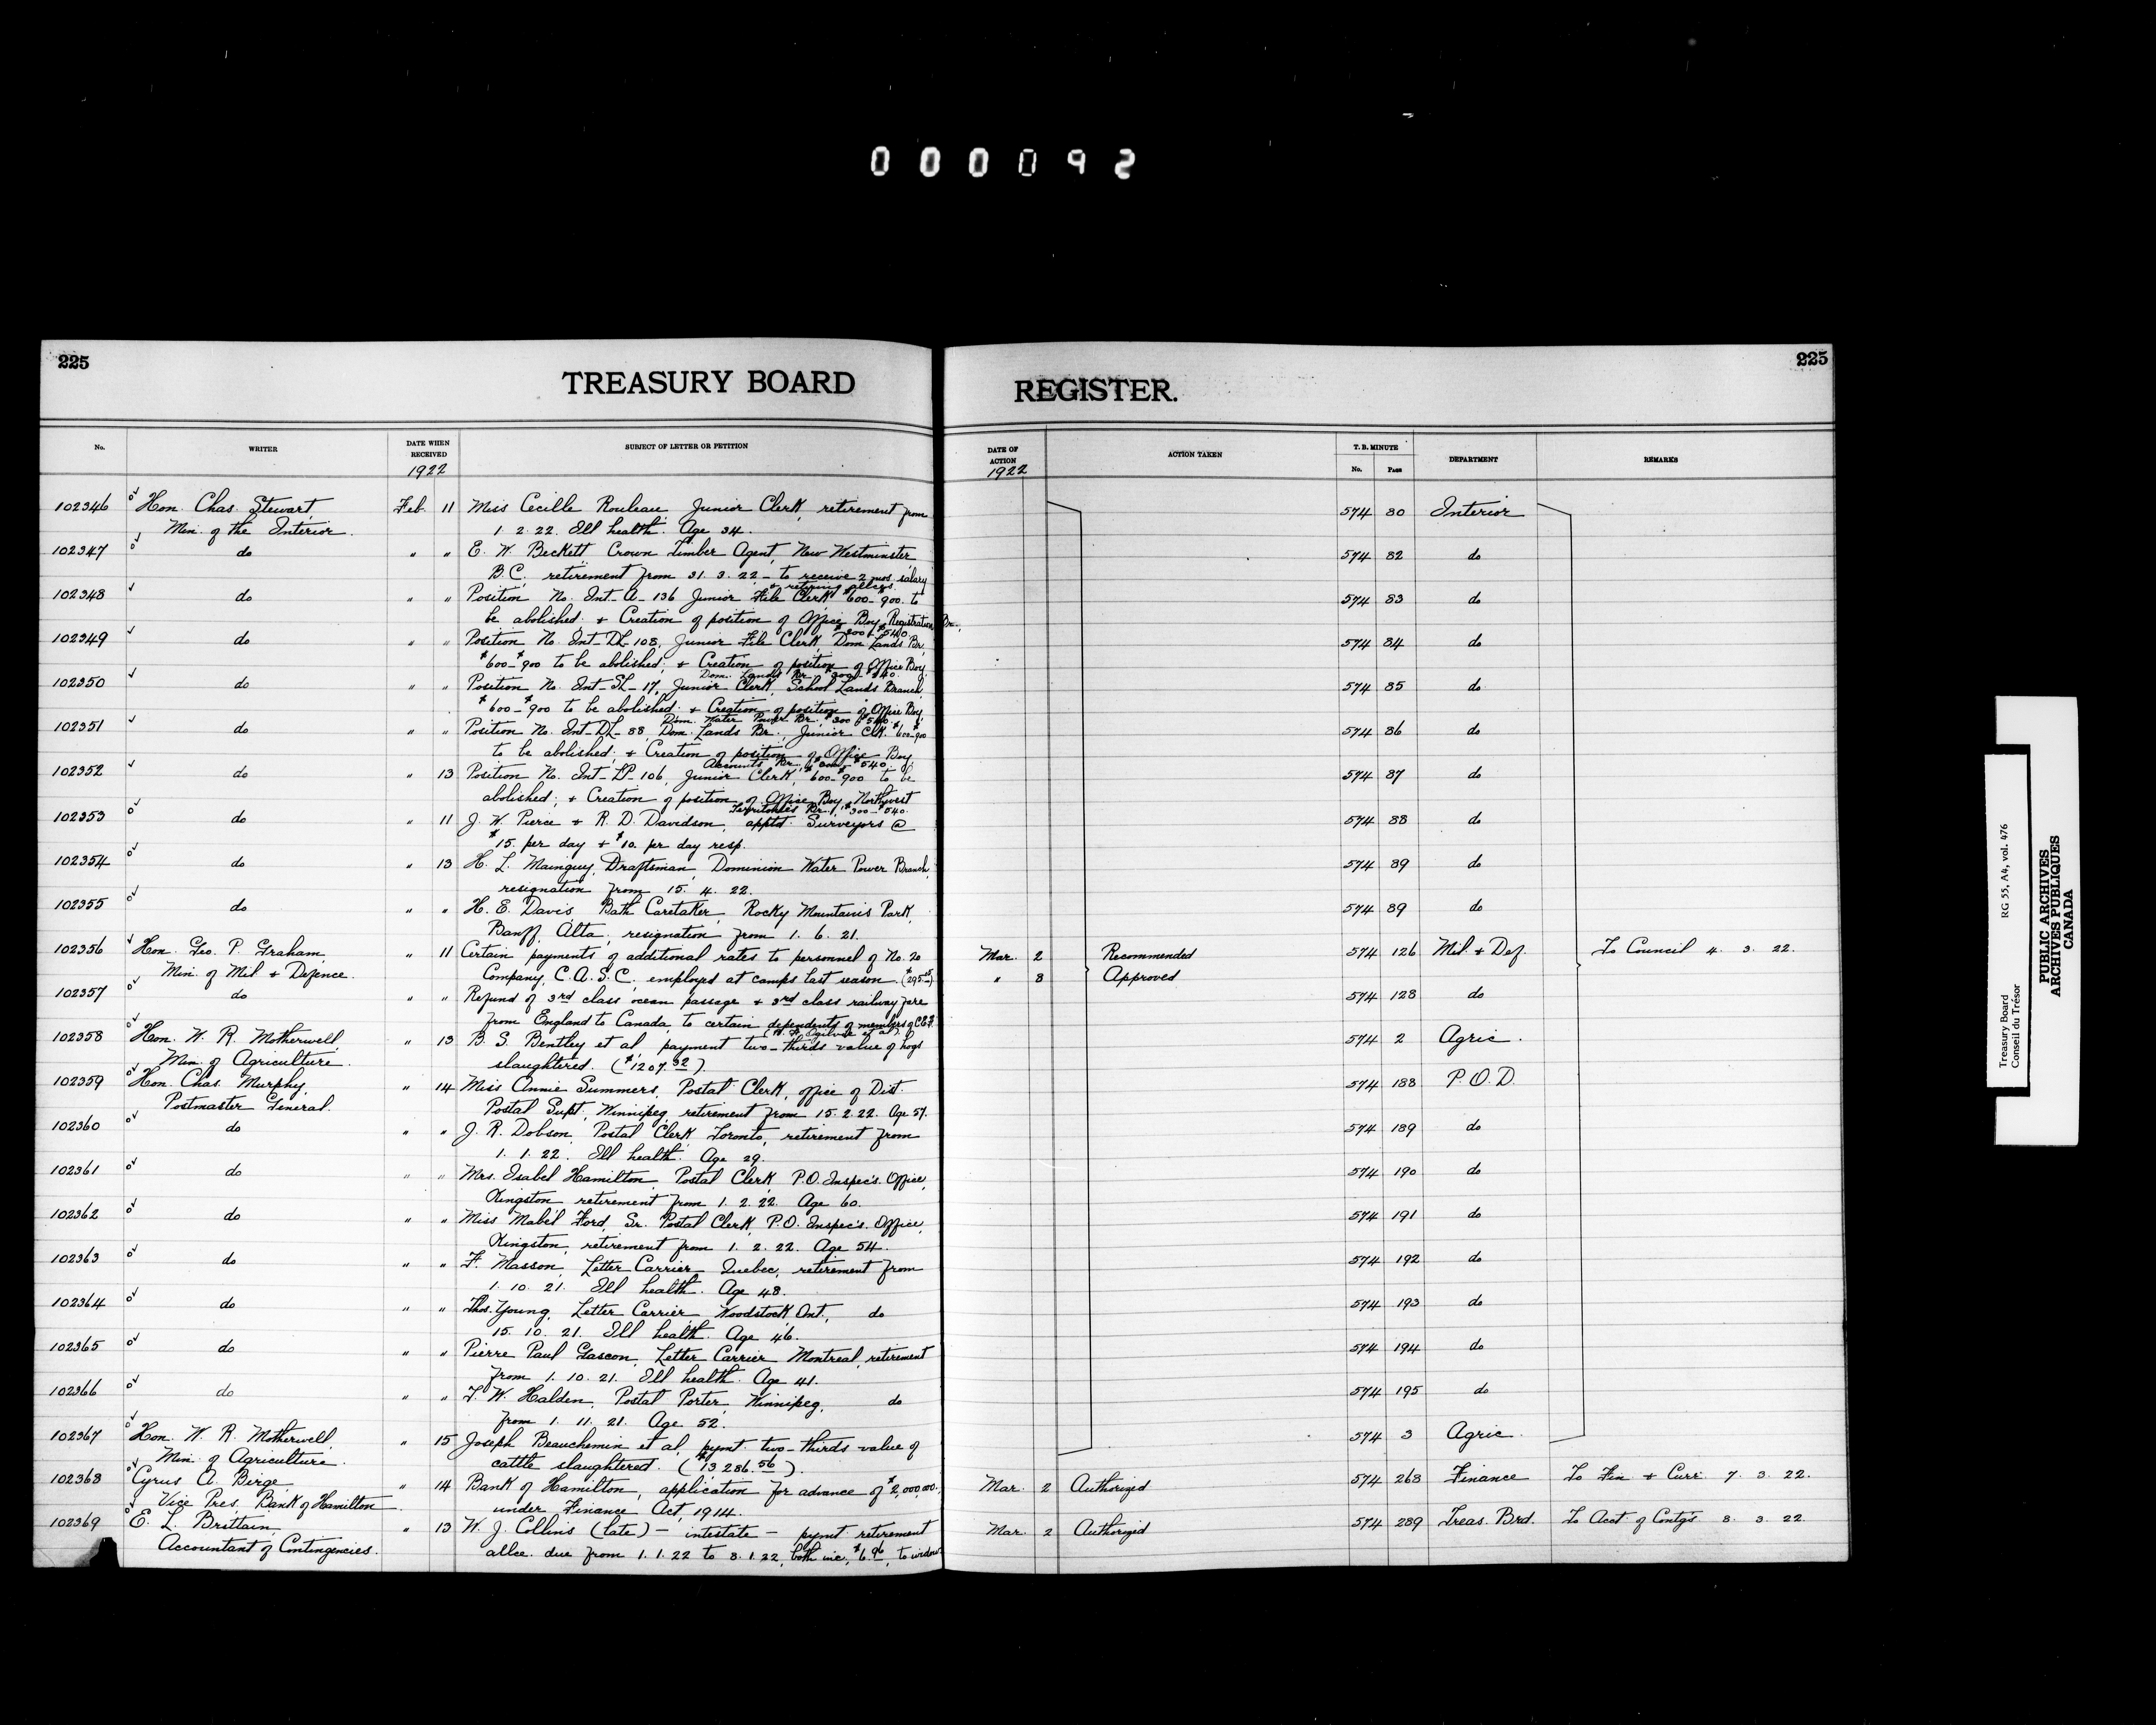 000092
225
TREASURY BOARD
REGISTER.
225
No. WRITER DATE WHEN RECEIVED SUBJECT OF LETTER OR PETITION DATE OF ACTION ACTION TAKEN T. B. MINUTE No. PAGE DEPARTMENT REMARKS
1922 1922
102346 Hon. Chas. Stewart, Feb. 11 Miss Cecille Rouleau Junior Clerk, retirement from 574 80 Interior
Min. of the Interior. 1. 2. 22. Ill health. Age 34.
102347 do " " E. W. Beckett Crown Timber Agent, New Westminster 574 82 do
B.C. retirement from 31. 3. 22 - to receive 2 mos. salary
& retiring allces.
102348 do " " Position No. Int-A-136 Junior File Clerk $600-900. to 574 83 do
be abolished. & Creation of position of Office Boy, Registration Br.,
$300-$540.
102349 do " " Position No. Int-DL-108, Junior File Clerk, Dom Lands Br., 574 84 do
$600-$900 to be abolished; & Creation of position of Office Boy,
Dom. Lands Br. $300-$540.
102350 do " " Position No. Int-SL-17, Junior Clerk, School Lands Branch, 574 85 do
$600-$900 to be abolished: & Creation of position of Office Boy,
Dom. Water Power Br. $300-$540.
102351 do " " Position No. Int-DL-88, Dom. Lands Br., Junior Clk. $600-$900 574 86 do
to be abolished; & Creation of position of Office Boy,
Accounts Br., $300-$540.
102352 do " 13 Position No. Int-LP-106, Junior Clerk, $600-$900 to be 574 87 do
abolished; & Creation of position of Office Boy, Northwest
Territories Br., $300-$540.
102353 do " 11 J. W. Pierce & R. D. Davidson, apptd. Surveyors @ 574 88 do
$15. per day & $10. per day resp.
102354 do " 13 H. L. Mainguy, Draftsman, Dominion Water Power Branch, 574 89 do
resignation from 15. 4. 22.
102355 do " " H. E. Davis, Bath Caretaker, Rocky Mountains Park, 574 89 do
Banff, Alta., resignation from 1. 6. 21.
102356 Hon. Geo. P. Graham, " 11 Certain payments of additional rates to personnel of No. 20 Mar. 2 Recommended 574 126 Mil & Def. To Council 4. 3. 22.
Min. of Mil & Defence. Company, C.A.S.C., employed at camps last season. " 8 Approved
102357 do " " Refund of 3rd class ocean passage & 3rd class railway fare 574 128 do
from England to Canada, to certain dependents of members of C.E.F.
102358 Hon. W. R. Motherwell " 13 B. S. Bentley et al, payment two-thirds value of hogs 574 2 Agric.
Min. of Agriculture. slaughtered. ($1207.32).
102359 Hon. Chas. Murphy, " 14 Miss Annie Summers, Postal Clerk, office of Dist. 574 188 P.O.D.
Postmaster General. Postal Supt., Winnipeg, retirement from 15. 2. 22. Age 57.
102360 do " " J. R. Dobson, Postal Clerk, Toronto, retirement from 574 189 do
1. 1. 22. Ill health. Age 29.
102361 do " " Mrs. Isabel Hamilton, Postal Clerk, P.O. Inspec's. Office, 574 190 do
Kingston retirement from 1. 2. 22. Age 60.
102362 do " " Miss Mabel Ford, Sr. Postal Clerk, P.O. Inspec's. Office, 574 191 do
Kingston, retirement from 1. 2. 22. Age 54.
102363 do " " F. Masson, Letter Carrier, Quebec, retirement from 574 192 do
1. 10. 21. Ill health. Age 48.
102364 do " " Thos. Young, Letter Carrier, Woodstock, Ont., do 574 193 do
15. 10. 21. Ill health. Age 46.
102365 do " " Pierre Paul Gascon, Letter Carrier Montreal, retirement 574 194 do
from 1. 10. 21. Ill health. Age 41.
102366 do " " T. W. Halden, Postal Porter, Winnipeg, do 574 195 do
from 1. 11. 21. Age 52.
102367 Hon. W. R. Motherwell " 15 Joseph Beauchemin et al, pymt. two-thirds value of 574 3 Agric.
Min. of Agriculture. cattle slaughtered. ($13 286.56).
102368 Cyrus A. Birge, " 14 Bank of Hamilton, application for advance of $2,000,000. Mar. 2 Authorized 574 268 Finance To Fin & Curr. 7. 3. 22.
Vice Pres. Bank of Hamilton under Finance Act, 1914.
102369 E. L. Brittain " 13 W. J. Collins (late) - intestate - pymt. retirement Mar. 2 Authorized 574 289 Treas. Brd. To Acct of Contg's 8. 3. 22.
Accountant of Contingencies. allce. due from 1. 1. 22 to 8. 1. 22, both inc, $6.96, to widow.
Treasury Board RG 55, A4, vol. 476
Conseil du Trésor
PUBLIC ARCHIVES
ARCHIVES PUBLIQUES
CANADA